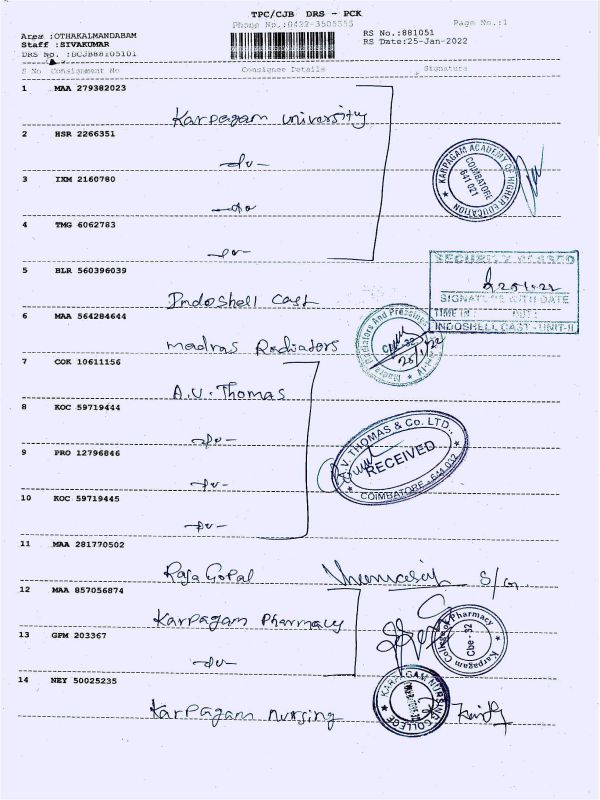 TPC/CJB DRS - PCK
Phone No.:0422-3505555
Page No.:1
Area :OTHAKALMANDABAM
Staff :SIVAKUMAR
DRS No. :DCJB88105101
RS No.:881051
RS Date:25-Jan-2022
S No Consignment No Consignee Details Signature
1 MAA 279382023
Karpagam University
2 HSR 2266351
-do-
3 IXM 2160780
-do-
4 TMG 6062783
-do-
KARPAGAM ACADEMY OF HIGHER EDUCATION
COIMBATORE
641 021
5 BLR 560396039
Indoshell Cast
SECURITY
SIGNATURE WITH DATE
TIME IN OUT
INDOSHELL CAST - UNIT-II
6 MAA 564284644
Madras Radiators
Madras Radiators And Pressings
Cbe-32
25/1/22
7 COK 10611156
A.V. Thomas
8 KOC 59719444
-do-
9 PRO 12796846
-do-
10 KOC 59719445
-do-
A.V. THOMAS & Co. LTD.,
RECEIVED
COIMBATORE - 641 032
11 MAA 281770502
Raja Gopal
12 MAA 857056874
Karpagam Pharmacy
13 GPM 203367
-do-
Karpagam College of Pharmacy
Cbe - 32
14 NEY 50025235
Karpagam Nursing
KARPAGAM NURSING COLLEGE